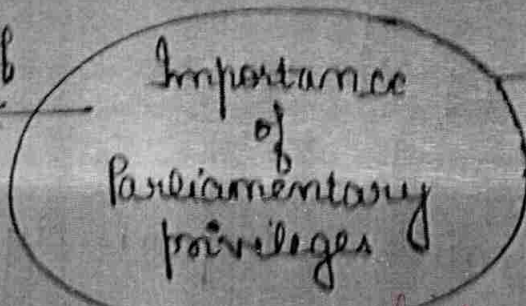 Importance
of
Parliamentary
privileges